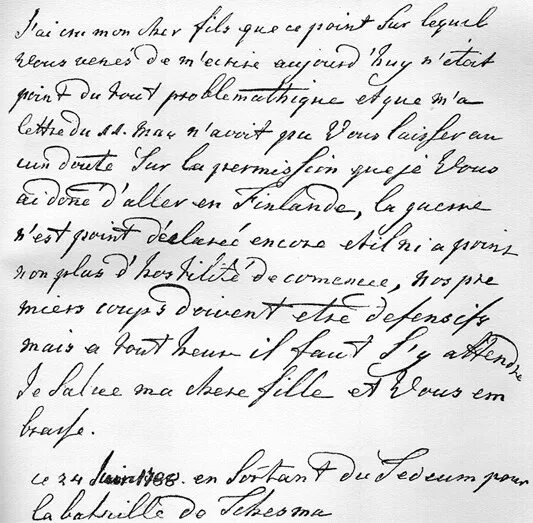 J'ai cru mon cher fils que ce point sur lequel
vous venés de m'ecrire aujourd'huy n'était
point du tout problemathique et que m'a
lettre du 11. may n'avoit pu vous laisser au
cun doute sur la permission que je vous
ai doné d'aller en Finlande, la guerre
n'est point déclarée encore et il ni a point
non plus d'hostilité de comencé, nos pre
miers coups doivent etre defensifs
mais a tout heure il faut s'y attendre
Je salue ma chere fille et vous em
brasse.
ce 24 Juin 1788. en sortant du Tedeum pour
la bataille de Tchesma